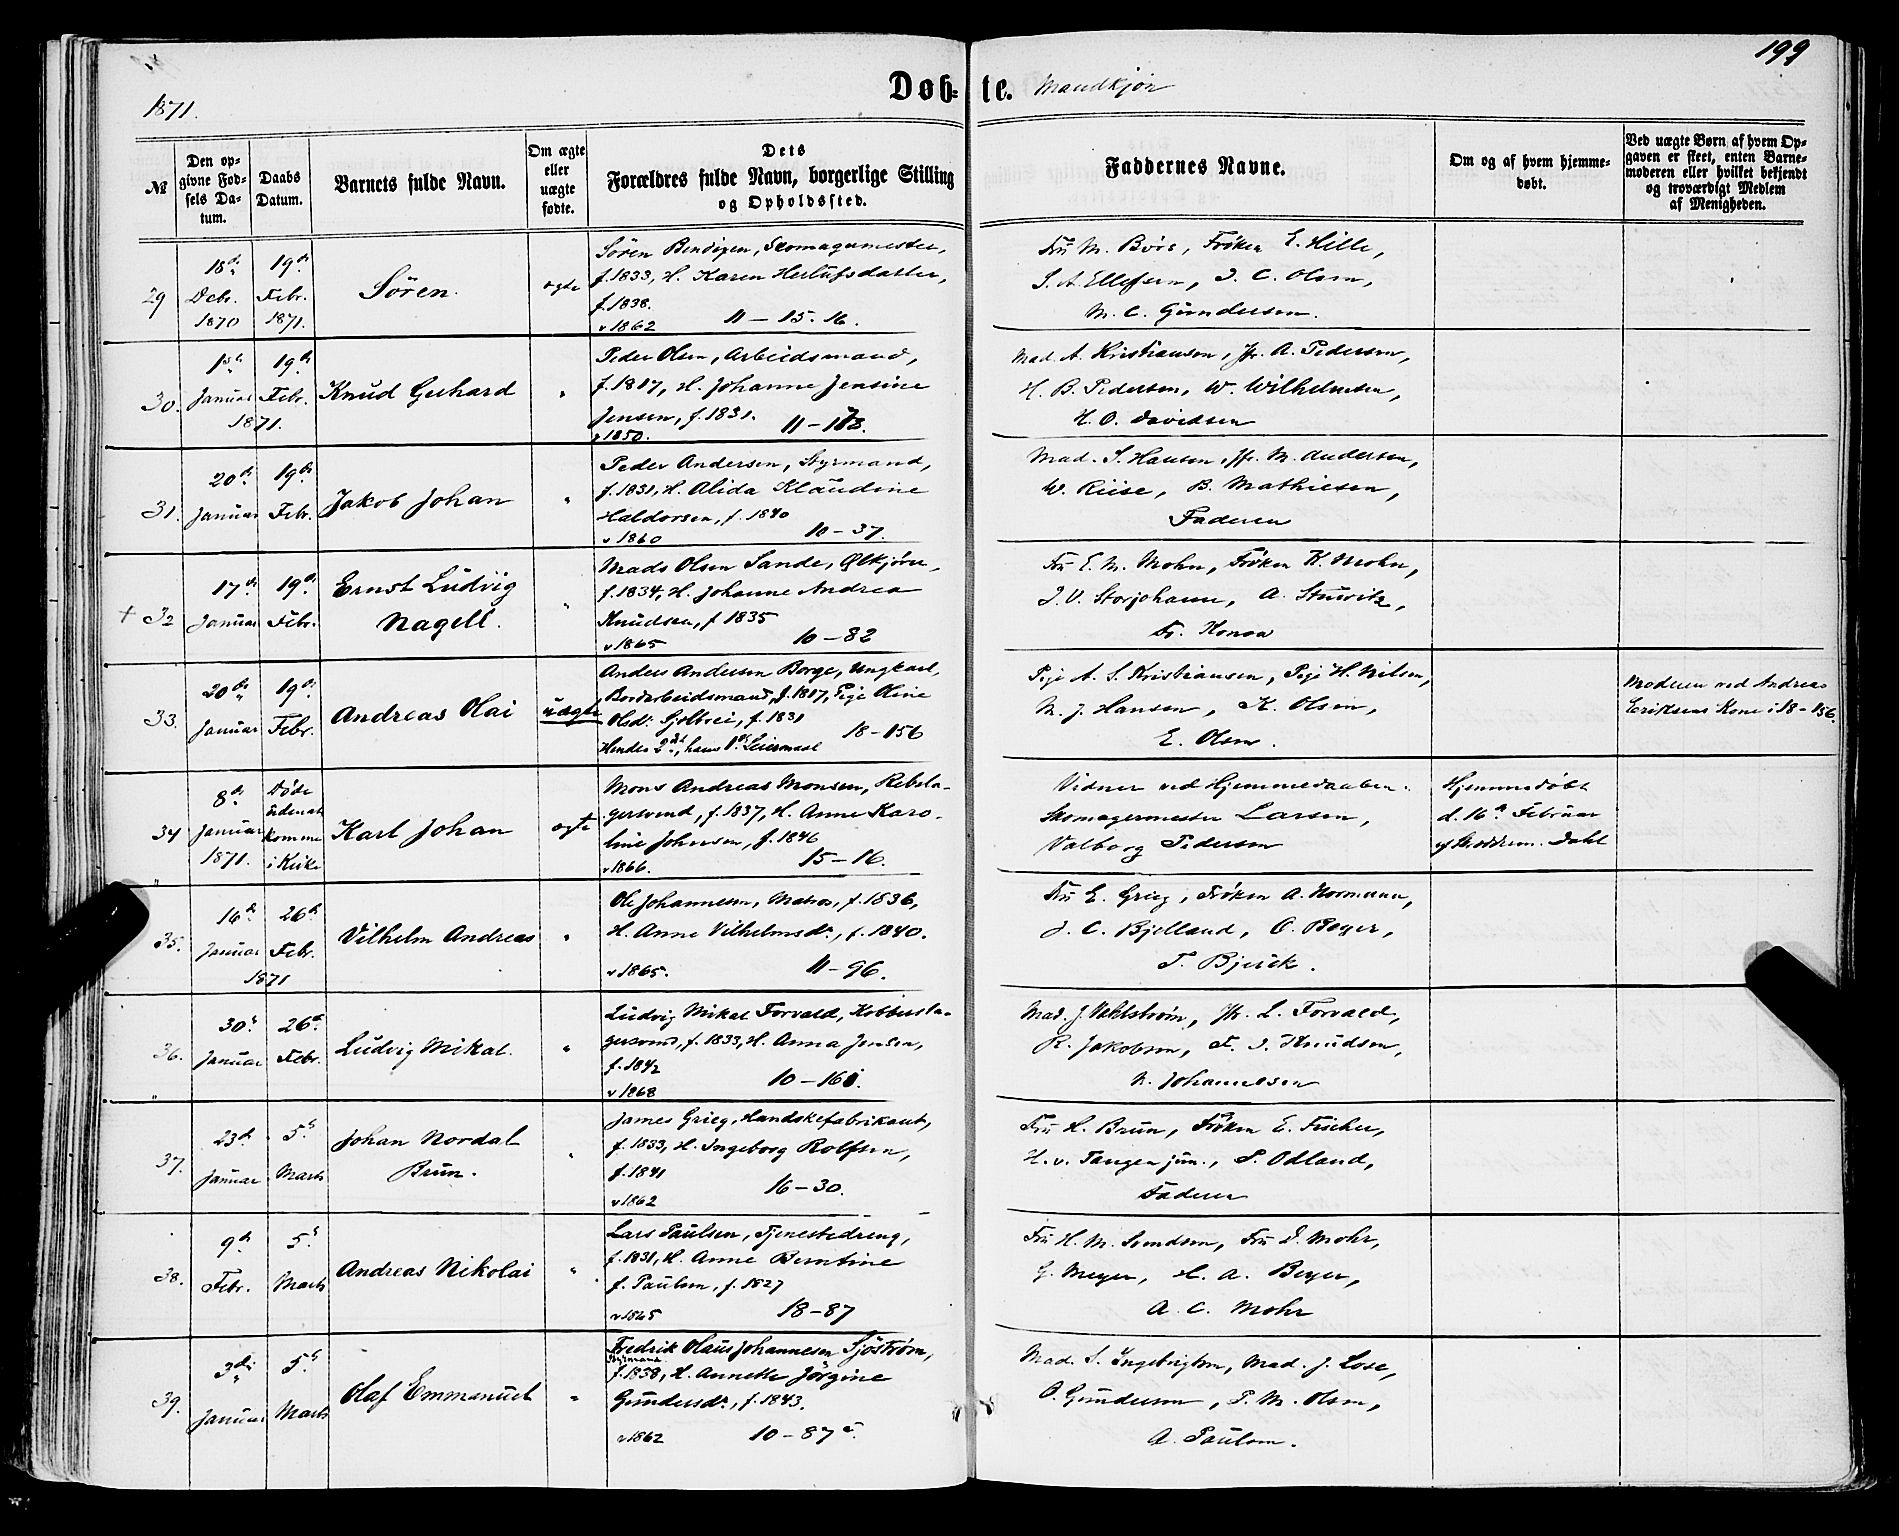 199
Døb- te. Mandkjøn
1871.
№
Den op-
givne Fød-
sels Da-
tum.
Daabs
Datum.
Barnets fulde Navn.
Om ægte
eller
uægte
fødte.
Dets
Forældres fulde Navn, borgerlige Stilling
og Opholdssted.
Faddernes Navne.
Om og af hvem hjemme-
døbt.
Ved uægte Børn af hvem Op-
gaven er skeet, enten Barne-
moderen eller hvilket bekjendt
og troværdigt Medlem
af Menigheden.
29
18de
Dcbr.
1870
19de
Febr.
1871.
Søren.
ægte
Søren Bendixen, Skomagermester,
f. 1833, H. Karen Herlufsdatter,
f. 1838.
v 1862 11 – 15. 16.
Fru M. Børs, Frøken E. Hille,
S. A. Ellefsen, J. C. Olsen,
M. C. Gundersen.
30.
1ste
Januar
19de
Febr.
1871.
Knud Gerhard
"
Peder Olsen, Arbeidsmand,
f. 1817, H. Johanne Jensine
Jensen, f. 1831.
v 1850.
Mad. A. Kristiansen, Jfr. A. Pedersen,
H. B. Pedersen, W. Wilhelmsen,
H. O. Davidsen
31.
20de
Januar
19de
Febr.
Jakob Johan
"
Peder Andersen, Styrmand,
f. 1831, H. Alida Klaudine
Haldorsen, f. 1840
v 1860 10 – 37.
Mad. S. Hansen, Jfr. M. Andersen,
W. Riise, B. Mathiesen,
Faderen
+ 32
17de
Januar
19de
Febr.
Ernst Ludvig
Nagell.
"
Mads Olsen Sande, Ølkjører,
f. 1834, H. Johanne Andrea
Knudsen, f 1835
v 1865 10 – 82
Fru E. M. Mohn, Frøken K. Mohn,
J. V. Storjohann, A. Sturvitz,
Fr. Konow
33.
20de
Januar
19de
Febr.
Andreas Olai
uægte
Anders Andersen Borge, Ungkarl,
Bordarbeidsmand, f. 1817, Pige Oline
Olsdr. Gjelbrei, f. 1831 18 – 156
Hendes 2det, hans 1ste Leiermaal
Pige A. S. Kristiansen, Pige H. Nilsen,
M. J. Hansen, K. Olsen,
E. Olsen.
Moderen ved Andreas
Eriksens Kone i 18 – 156.
34
8de
Januar
1871.
Døde
uden at
komme
i Kirke
Karl Johan
ægte
Mons Andreas Monsen, Rebsla-
gersvend, f. 1837, H. Anne Karo-
line Johnsen, f. 1846
v 1866. 15 – 16.
Vidner ved Hjemmedaaben:
Skomagermester Larsen,
Valborg Pedersen
Hjemmedøbt
d. 16de Februar
af Jordem. Dahl
35.
16de
Januar
26de
Febr.
1871
Vilhelm Andreas
"
Ole Johannesen, Matros, f. 1836,
H. Anne Vilhelmsdr., f. 1840.
v 1865. 11 – 96.
Fru E. Grieg, Frøken A. Normann,
J. C. Bjelland, O. Beyer,
T. Bjerck.
36.
30te
Januar
26de
Febr.
Ludvig Mikal.
"
Ludvig Mikal Forvald, Kobbersla-
gersvend, f. 1833, H. Anna Jensen,
f. 1842
v 1868 10 – 161.
Mad. J. Wahlstrøm, Jfr. L. Forvald,
R. Jakobsen, F. J. Knudsen,
N. Johannesen
37.
23de
Januar
5te
Marts
Johan Nordal
Brun.
"
James Grieg, Handskefabrikant,
f. 1833, H. Ingeborg Rolfsen,
f. 1841
v 1862 16 – 30.
Fru H. Brun, Frøken E. Fischer,
H. v. Tangen jun., S. Odland,
Faderen
38.
9de
Febr.
5te
Marts
Andreas Nikolai
"
Lars Paulsen, Tjenestedreng,
f. 1831, H. Anne Berntine
f. Paulsen, f. 1827
v 1865 18 – 87
Fru H. M. Svendsen, Fru D. Mohr,
G. Meyer, H. A. Beyer,
A. C. Mohr
39.
3die
Januar
5te
Marts
Olaf Emmanuel
"
Fredrik Olaus Johannesen Sjöström,
Styrmand
f. 1838, H. Annette Jörgine
Gundersdr., f. 1843.
v 1862 10 – 87 c.
Mad. S. Ingebrigtsen, Mad. J. Lose,
O. Gundersen, P. M. Olsen,
A. Paulsen.